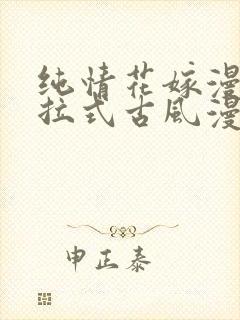 纯情花嫁漫
拉式古風漫
申正泰